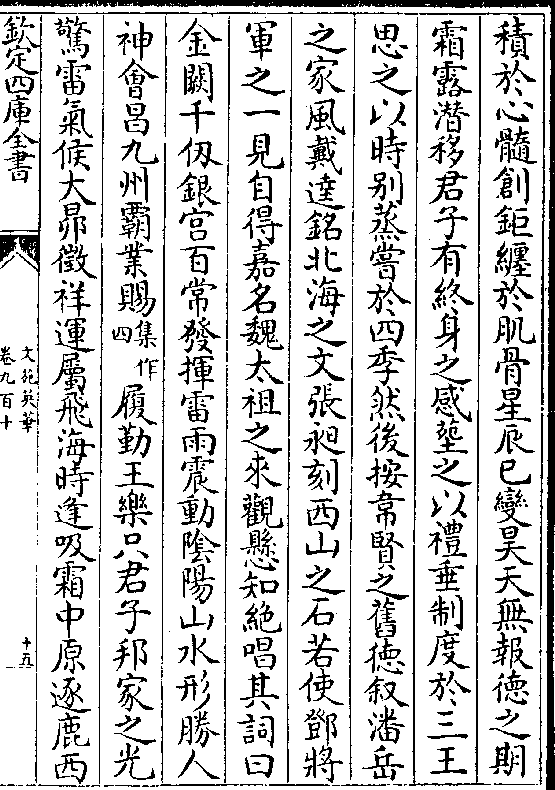 積於心髓創鉅纏於肌骨星辰已變昊天無報德之期
霜露潛移君子有終身之感塟之以禮垂制度於三王
思之以時别蒸嘗於四季然後按韋賢之舊德叙潘岳
之家風戴逵銘北海之文張昶刻西山之石若使鄧將
軍之一見自得嘉名魏太祖之來觀懸知絶唱其詞曰
金闕千仭銀宫百常發揮雷雨震動陰陽山水形勝人
神會昌九州霸業賜集作四履勤王樂只君子邦家之光
驚雷氣候大昴徵祥運屬飛海時逢吸霜中原逐鹿西
欽定四庫全書
文苑英華
卷九百十
十五